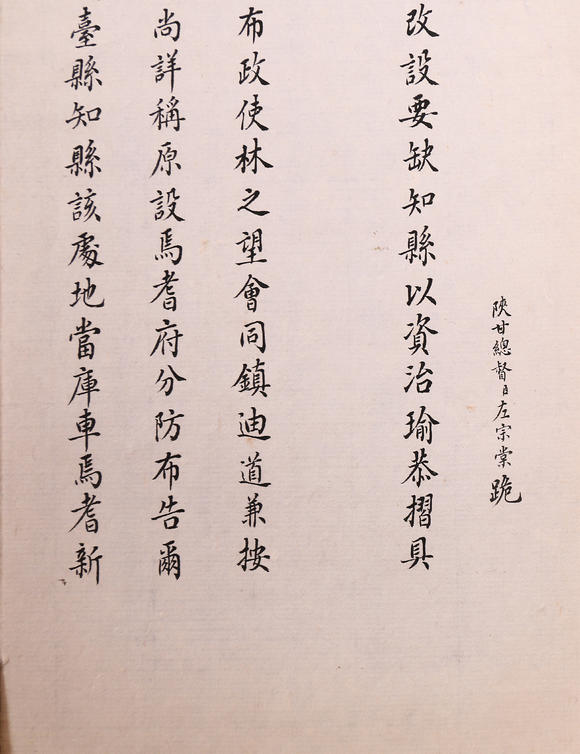 陝甘總督臣左宗棠跪
改設要缺知縣以資治瑜恭摺具
布政使林之望會同鎮迪道兼按
尚詳稱原設焉耆府分防布告爾
臺縣知縣該處地當庫車焉耆新